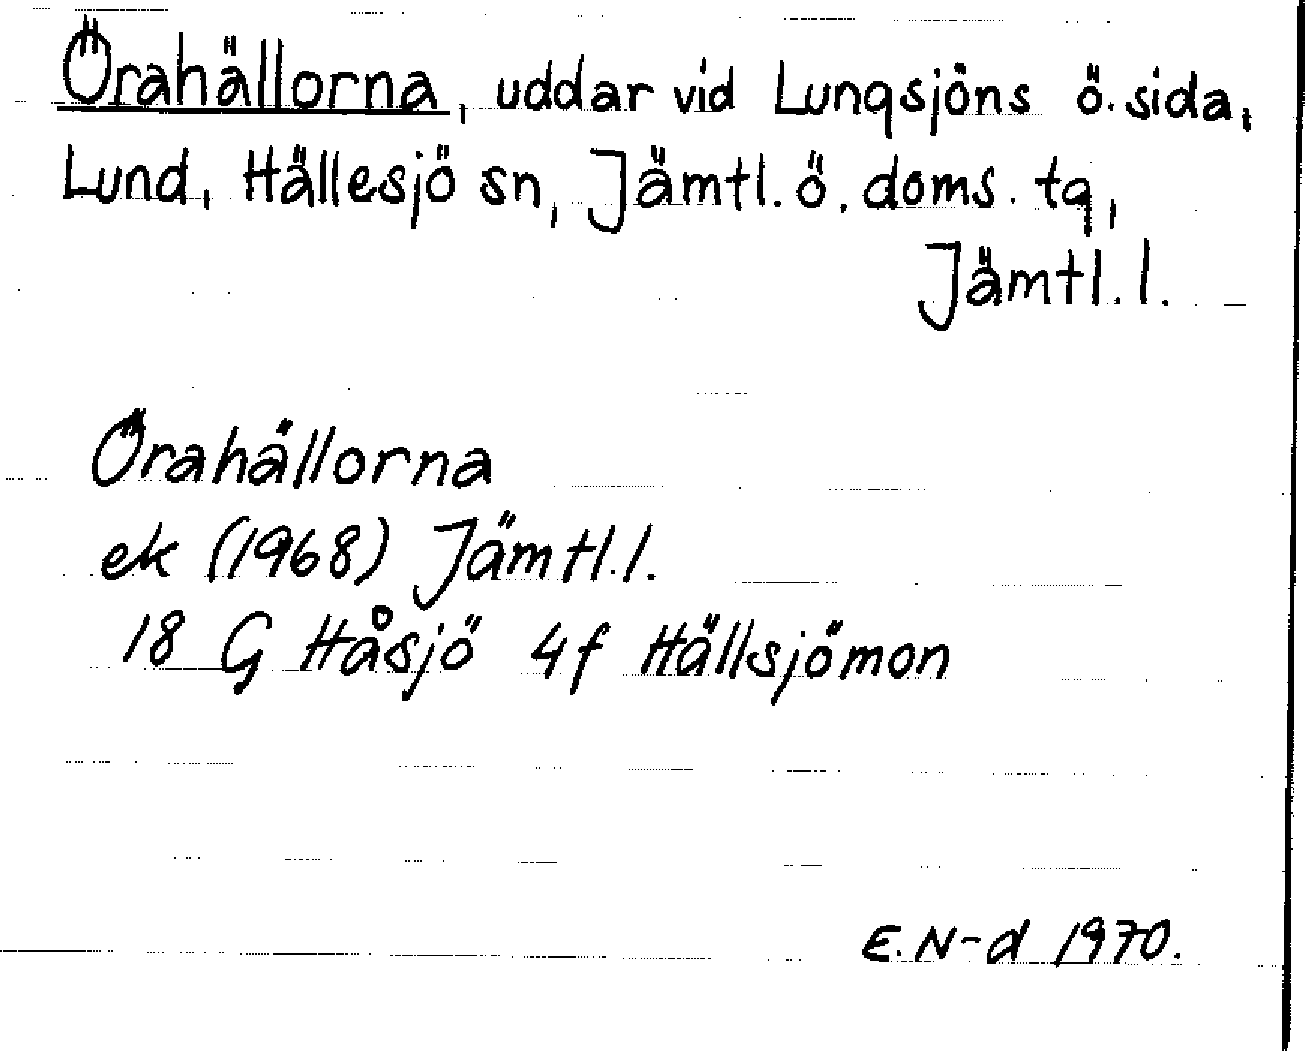 Örahällorna, uddar vid Lungsjöns ö. sida,
Lund, Hällesjö sn, Jämtl. ö. doms. tg,
Jämtl. l.
Örahällorna
ek (1968) Jämtl. l.
18 G Håsjö 4f Hällsjömon
E. N-d 1970.